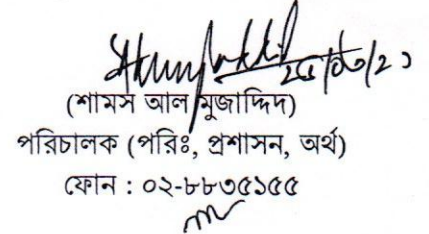 (শামস আল মুজাদ্দিদ)
পরিচালক (পরিঃ, প্রশাসন, অর্থ)
ফোন : ০২-৮৮৩৫১৫৫